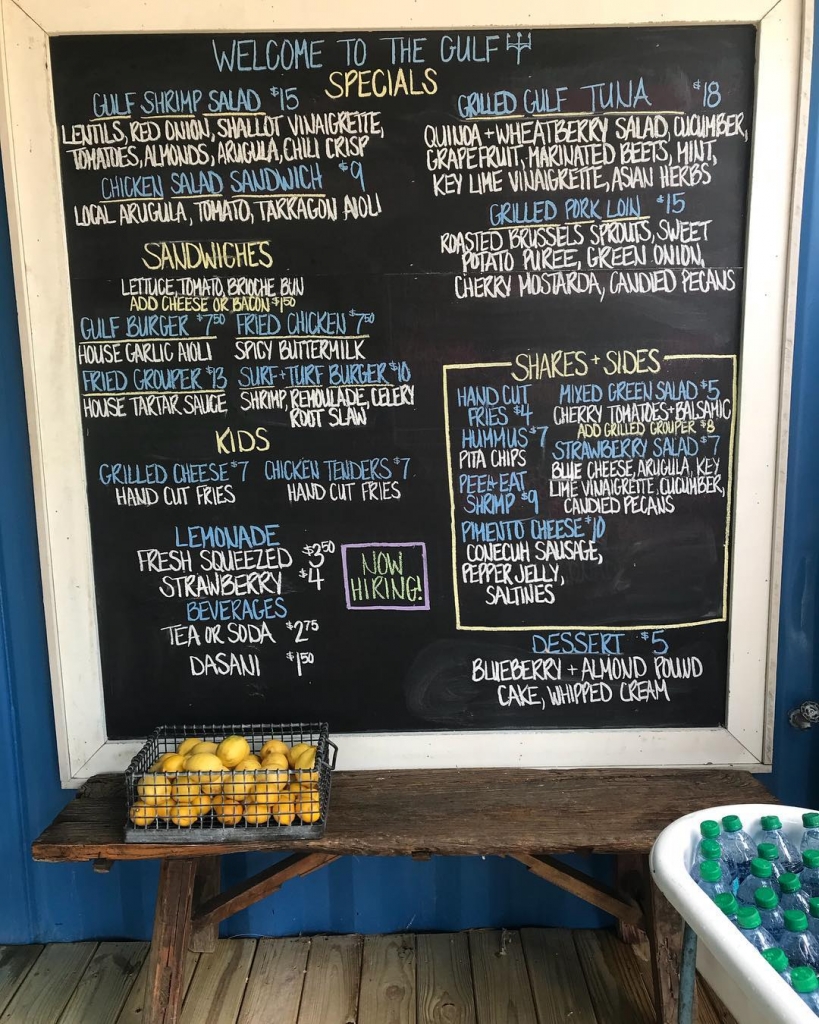 WELCOME TO THE GULF
SPECIALS
GULF SHRIMP SALAD $15
LENTILS, RED ONION, SHALLOT VINAIGRETTE,
TOMATOES, ALMONDS, ARUGULA, CHILI CRISP
CHICKEN SALAD SANDWICH $9
LOCAL ARUGULA, TOMATO, TARRAGON AIOLI
GRILLED GULF TUNA $18
QUINOA + WHEATBERRY SALAD, CUCUMBER,
GRAPEFRUIT, MARINATED BEETS, MINT,
KEY LIME VINAIGRETTE, ASIAN HERBS
GRILLED PORK LOIN $15
ROASTED BRUSSELS SPROUTS, SWEET
POTATO PUREE, GREEN ONION,
CHERRY MOSTARDA, CANDIED PECANS
SANDWICHES
LETTUCE, TOMATO, BRIOCHE BUN
ADD CHEESE OR BACON $1.50
GULF BURGER $7.50
HOUSE GARLIC AIOLI
FRIED CHICKEN $7.50
SPICY BUTTERMILK
FRIED GROUPER $13
HOUSE TARTAR SAUCE
SURF + TURF BURGER $10
SHRIMP, REMOULADE, CELERY
ROOT SLAW
KIDS
GRILLED CHEESE $7
HAND CUT FRIES
CHICKEN TENDERS $7
HAND CUT FRIES
LEMONADE
FRESH SQUEEZED $3.50
STRAWBERRY $4
BEVERAGES
TEA OR SODA $2.75
DASANI $1.50
NOW
HIRING!
SHARES + SIDES
HAND CUT
FRIES $4
HUMMUS $7
PITA CHIPS
PEEL + EAT
SHRIMP $9
PIMENTO CHEESE $10
CONECUH SAUSAGE,
PEPPER JELLY,
SALTINES
MIXED GREEN SALAD $5
CHERRY TOMATOES + BALSAMIC
ADD GRILLED GROUPER $8
STRAWBERRY SALAD $7
BLUE CHEESE, ARUGULA, KEY
LIME VINAIGRETTE, CUCUMBER,
CANDIED PECANS
DESSERT $5
BLUEBERRY + ALMOND POUND
CAKE, WHIPPED CREAM